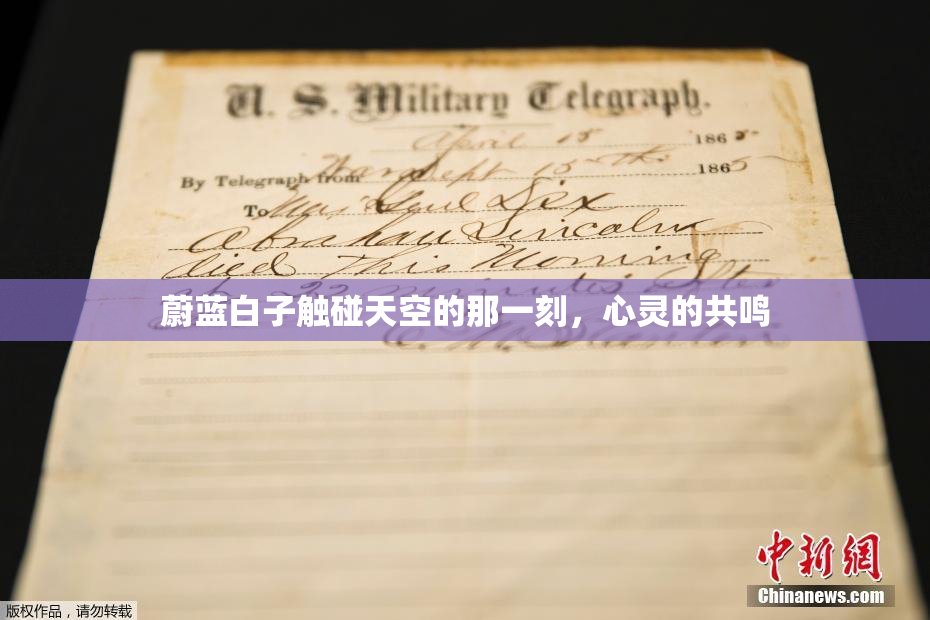 U. S. Military Telegraph.
April 15 1865
By Telegraph from War Dept 15th 1865
To Maj Genl Dix
Abraham Lincoln
died This Morning
at 22 minutes after
蔚蓝白子触碰天空的那一刻，心灵的共鸣
E. M. Stanton
中新网
Chinanews.com
版权作品，请勿转载